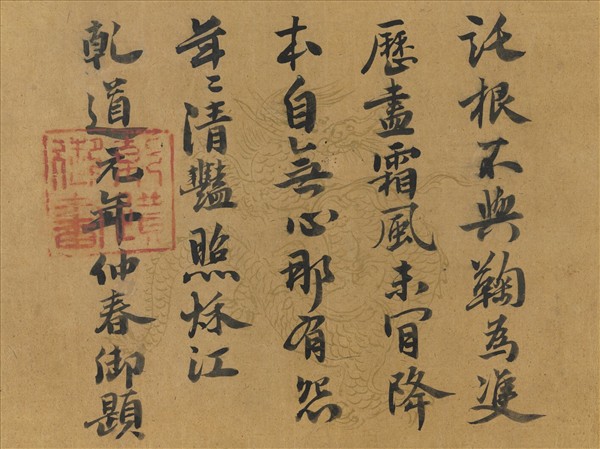 託根不與鞠為雙
歷盡霜風未肎降
本自無心那有怨
年〻清豔照秋江
乾道元年仲春御題